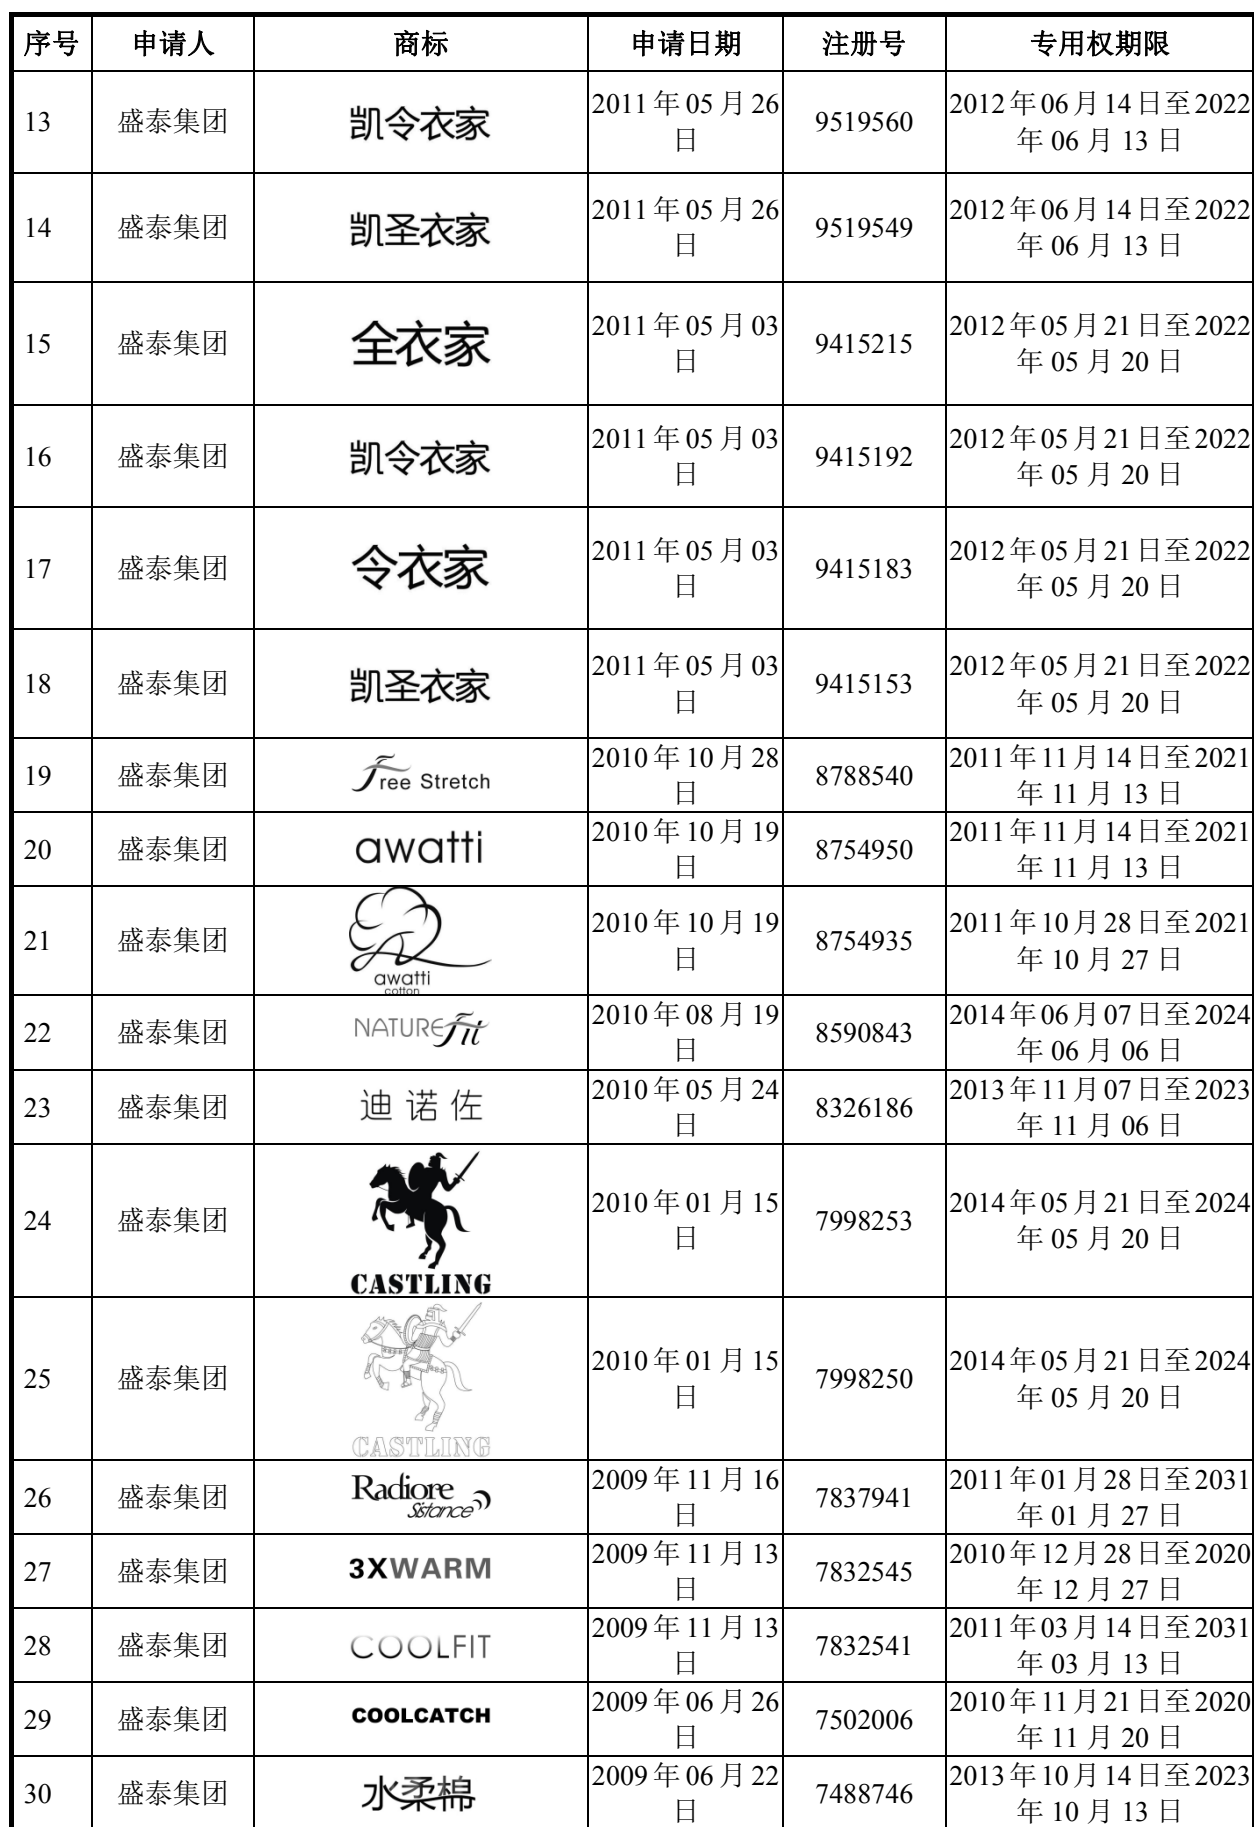 序号 申请人 商标 申请日期 注册号 专用权期限
13 盛泰集团 凯令衣家 2011年05月26日 9519560 2012年06月14日至2022年06月13日
14 盛泰集团 凯圣衣家 2011年05月26日 9519549 2012年06月14日至2022年06月13日
15 盛泰集团 全衣家 2011年05月03日 9415215 2012年05月21日至2022年05月20日
16 盛泰集团 凯令衣家 2011年05月03日 9415192 2012年05月21日至2022年05月20日
17 盛泰集团 令衣家 2011年05月03日 9415183 2012年05月21日至2022年05月20日
18 盛泰集团 凯圣衣家 2011年05月03日 9415153 2012年05月21日至2022年05月20日
19 盛泰集团 Free Stretch 2010年10月28日 8788540 2011年11月14日至2021年11月13日
20 盛泰集团 awatti 2010年10月19日 8754950 2011年11月14日至2021年11月13日
21 盛泰集团 awatti cotton 2010年10月19日 8754935 2011年10月28日至2021年10月27日
22 盛泰集团 NATUREFit 2010年08月19日 8590843 2014年06月07日至2024年06月06日
23 盛泰集团 迪诺佐 2010年05月24日 8326186 2013年11月07日至2023年11月06日
24 盛泰集团 CASTLING 2010年01月15日 7998253 2014年05月21日至2024年05月20日
25 盛泰集团 CASTLING 2010年01月15日 7998250 2014年05月21日至2024年05月20日
26 盛泰集团 Radiore Sistance 2009年11月16日 7837941 2011年01月28日至2031年01月27日
27 盛泰集团 3XWARM 2009年11月13日 7832545 2010年12月28日至2020年12月27日
28 盛泰集团 COOLFIT 2009年11月13日 7832541 2011年03月14日至2031年03月13日
29 盛泰集团 COOLCATCH 2009年06月26日 7502006 2010年11月21日至2020年11月20日
30 盛泰集团 水柔棉 2009年06月22日 7488746 2013年10月14日至2023年10月13日